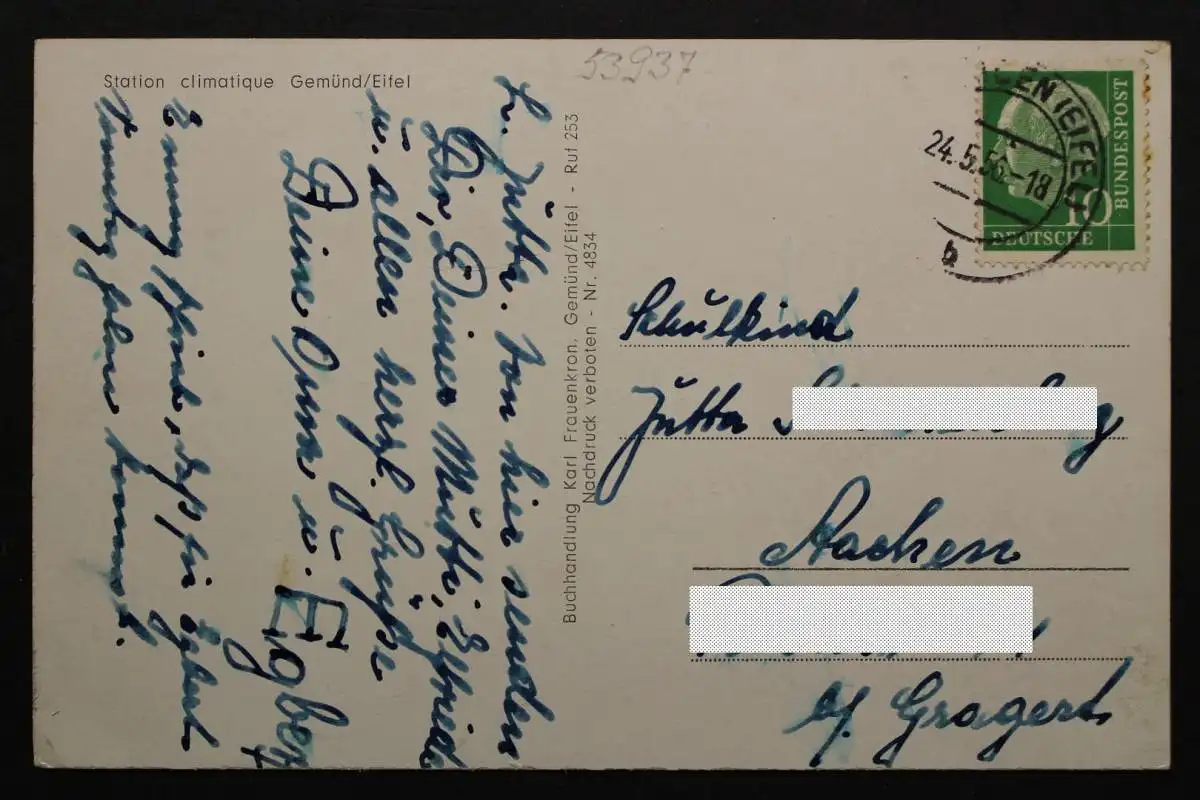 Station climatique Gemünd/Eifel
53937
L. Jutta. Von hier senden
Dir, Deiner Mutti, Elfriede
u. allen herzl. Grüße
Deine Oma u.
Egbert
daß für Egbert
kommst.
Buchhandlung Karl Frauenkron, Gemünd/Eifel - Ruf 253
Nachdruck verboten - Nr. 4834
EN (EIFEL)
24.5.56.-18
b
10
DEUTSCHE
BUNDESPOST
Schulkind
Jutta
Aachen
b/. Gragert